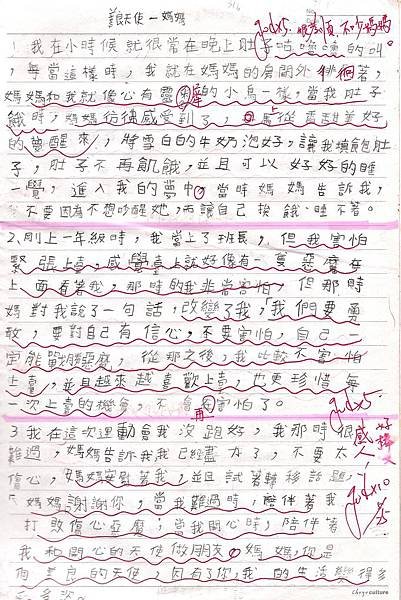 天使-媽媽
good x5. 很幸 不少媽媽。
1.我在小時候就很常在晚上肚子咕嚕嚕的叫
,每當這樣時,我就在媽媽的房間外徘徊著,
媽媽和我就像心有靈犀的小鳥一樣,當我肚子
餓時,媽媽彷彿感受到了,馬從香甜美好
的夢醒來,將雪白的牛奶泡好,讓我填飽肚
子,肚子不再飢餓,並且可以好好的睡
一覺,進入我的夢中。當時媽媽告訴我,
不要因為不想吵醒她,而讓自己挨餓、睡不著。
2.剛上一年級時,我當上了班長,但我害怕
緊張上臺,感覺臺上說好像有一隻惡魔在
上面看著我,那時的我非常害怕,但那時
媽對我說了一句話,改變了我,「我們要勇
敢,要對自己有信心,不要害怕,自己一
定能戰勝惡魔,從那之後,我比較不害怕
上臺,並且越來越喜歡上臺,也更珍惜每
一次上臺的機會,不會再害怕了。
good x5.
3.我在這次運動會我沒跑好,我那時很
難過,媽媽告訴我我已經盡力了,不要太
傷心,媽媽安慰著我,並且試著轉移話題,
「媽媽謝謝你,當我難過時,陪伴著我
打敗傷心惡魔;當我開心時,陪伴著
我,和開心的天使做朋友。媽媽,你是
個善良的天使,因有了你,我的生活變得多
感人!
good x10
Chrys culture